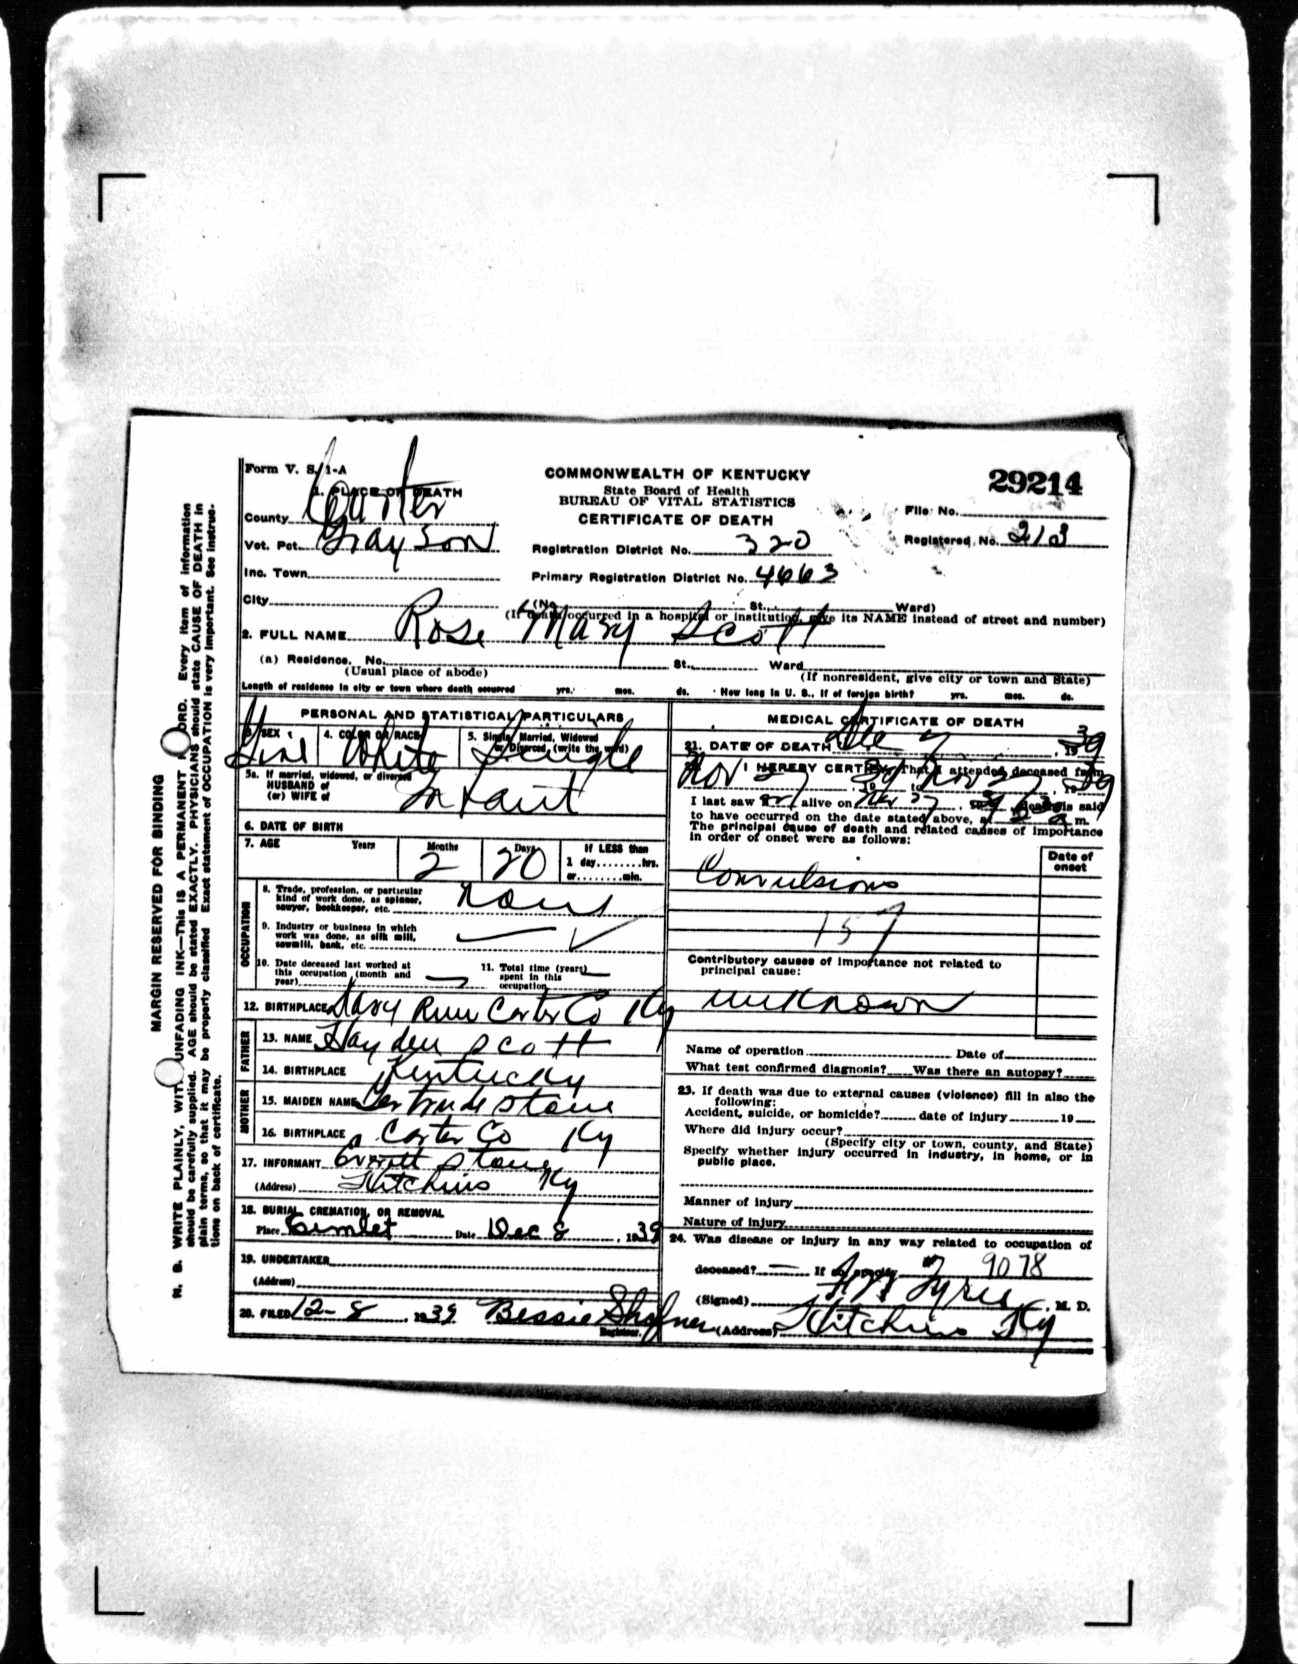 Form V. S. 1-A
COMMONWEALTH OF KENTUCKY
State Board of Health
BUREAU OF VITAL STATISTICS
CERTIFICATE OF DEATH
29214
1. PLACE OF DEATH
County Carter
File No.
Vot. Pct. Grayson
Registration District No. 320
Registered No. 213
Inc. Town
Primary Registration District No. 4663
City
(No. St., Ward)
(If death occurred in a hospital or institution, give its NAME instead of street and number)
2. FULL NAME Rose Mary Scott
(a) Residence. No. St., Ward
(Usual place of abode) (If nonresident, give city or town and State)
Length of residence in city or town where death occurred yrs. mos. ds. How long in U. S., if of foreign birth? yrs. mos. ds.
PERSONAL AND STATISTICAL PARTICULARS
3. SEX Girl 4. COLOR OR RACE White 5. Single, Married, Widowed or Divorced, (write the word) Single
5a. If married, widowed, or divorced
HUSBAND of
(or) WIFE of Infant
6. DATE OF BIRTH
7. AGE Years Months 2 Days 20 If LESS than
1 day........hrs.
or........min.
OCCUPATION
8. Trade, profession, or particular
kind of work done, as spinner,
sawyer, bookkeeper, etc.
9. Industry or business in which
work was done, as silk mill,
sawmill, bank, etc.
10. Date deceased last worked at
this occupation (month and
year)
11. Total time (years)
spent in this
occupation
12. BIRTHPLACE Carter Co Ky
FATHER
13. NAME Hayden Scott
14. BIRTHPLACE Kentucky
MOTHER
15. MAIDEN NAME Gertrude Stone
16. BIRTHPLACE Carter Co Ky
17. INFORMANT Everett Stone
(Address) Hitchins Ky
18. BURIAL, CREMATION, OR REMOVAL
Place Gimlet Date Dec 8, 1939
19. UNDERTAKER
(Address)
20. FILED 12-8 1939 Bessie Shafner
Registrar.
MEDICAL CERTIFICATE OF DEATH
21. DATE OF DEATH Dec 7, 1939
22. I HEREBY CERTIFY, That I attended deceased from
Nov 27, 39 to Nov 27, 1939
I last saw alive on Nov 27, 39, death is said
to have occurred on the date stated above, at m.
The principal cause of death and related causes of importance
in order of onset were as follows:
Date of
onset
Convulsions
157
Contributory causes of importance not related to
principal cause:
unknown
Name of operation Date of
What test confirmed diagnosis? Was there an autopsy?
23. If death was due to external causes (violence) fill in also the
following:
Accident, suicide, or homicide? date of injury 19
Where did injury occur?
(Specify city or town, county, and State)
Specify whether injury occurred in industry, in home, or in
public place.
Manner of injury
Nature of injury
24. Was disease or injury in any way related to occupation of
deceased? If so, specify 9078
(Signed) M. D.
(Address) Hitchins Ky
MARGIN RESERVED FOR BINDING
N. B. WRITE PLAINLY, WITH UNFADING INK—This is A PERMANENT RECORD. Every item of information
should be carefully supplied. AGE should be stated EXACTLY. PHYSICIANS should state CAUSE OF DEATH in
plain terms, so that it may be properly classified Exact statement of OCCUPATION is very important. See instruc-
tions on back of certificate.